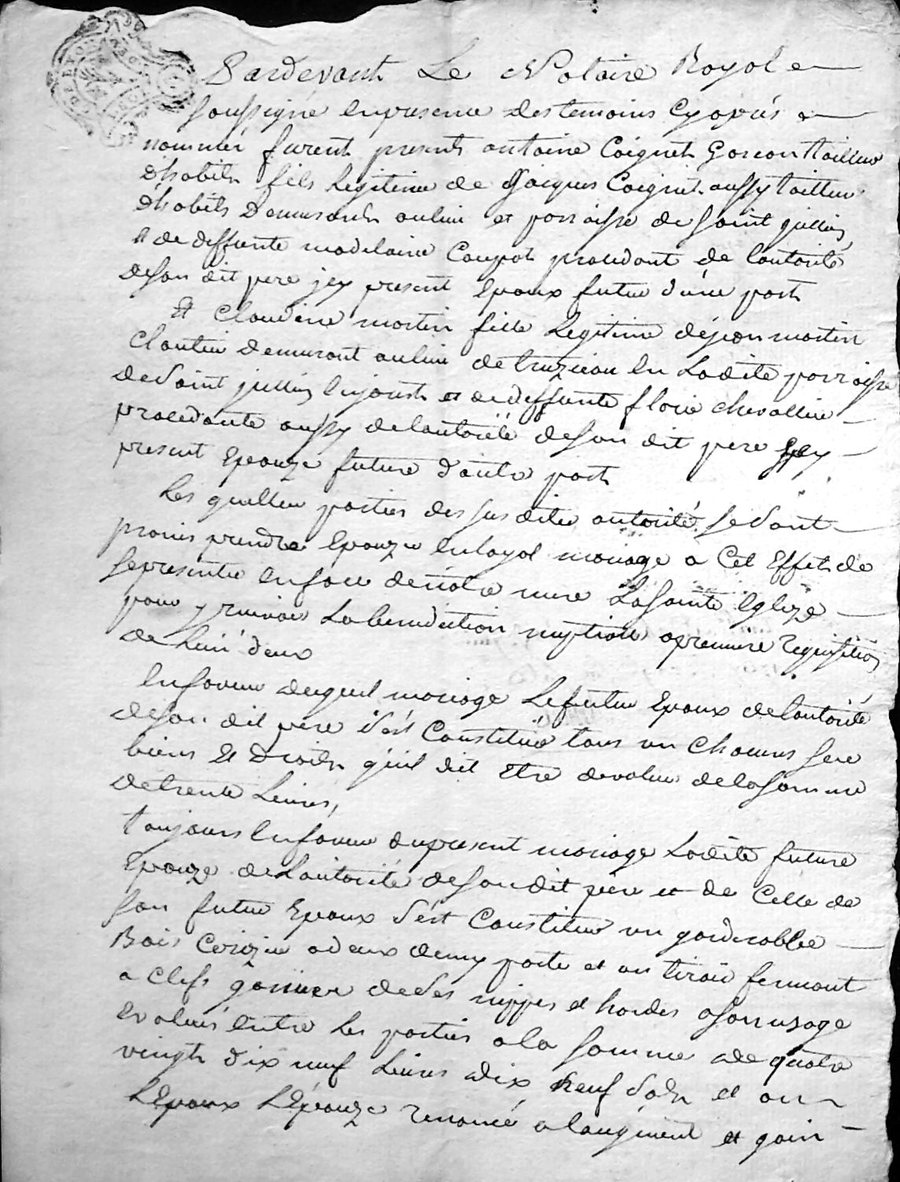 Pardevant Le Notaire Royal
soussigné en presence des temoins cy après
nommés furent presents antoine Coignet Garcon tailleur
d'habits fils legitime de Jacques Coignet aussy tailleur
d'habits demeurants au lieu et parroisse de saint jullien
et de deffunte madelaine Coupat procedant de l'autorité
de son dit pere jcy present Epoux futur d'une part
Et Claudine martin fille Legitime de jean martin
demeurant au lieu de en Ladite parroisse
de saint jullien en jarest et de deffunte florie chevallier
procedante aussy de l'autorité de son dit pere jcy
present Epouze future d'autre part
Les quelles parties des susdites autorités se sont
promis prendre Epouze en loyal mariage a Cet Effet de
se presenter en face de nôtre mere La sainte Eglize
pour y recevoir La benediction nuptiale a premiere requisition
de L'un d'eux
En faveur duquel mariage Le futur Epoux de l'autorité
de son dit père s'est Constitué tous un chacuns ses
biens Et Droits qu'il dit Etre de valeur de la somme
de trente Livres,
toujours En faveur du present mariage Ladite future
Epouze de L'autorité de son dit père et de Celle de
son futur Epoux s'est Constitué un garderobbe
Bois Cerizier a deux demy porte et un tiroir fermant
a clefs garnier de ses nippes et hardes a son usage
Evalués entre Les parties a la somme de quatre
vingts dix neuf Livres dix neuf sols et
L'Epoux L'Epouze renoncé a laugment et gain